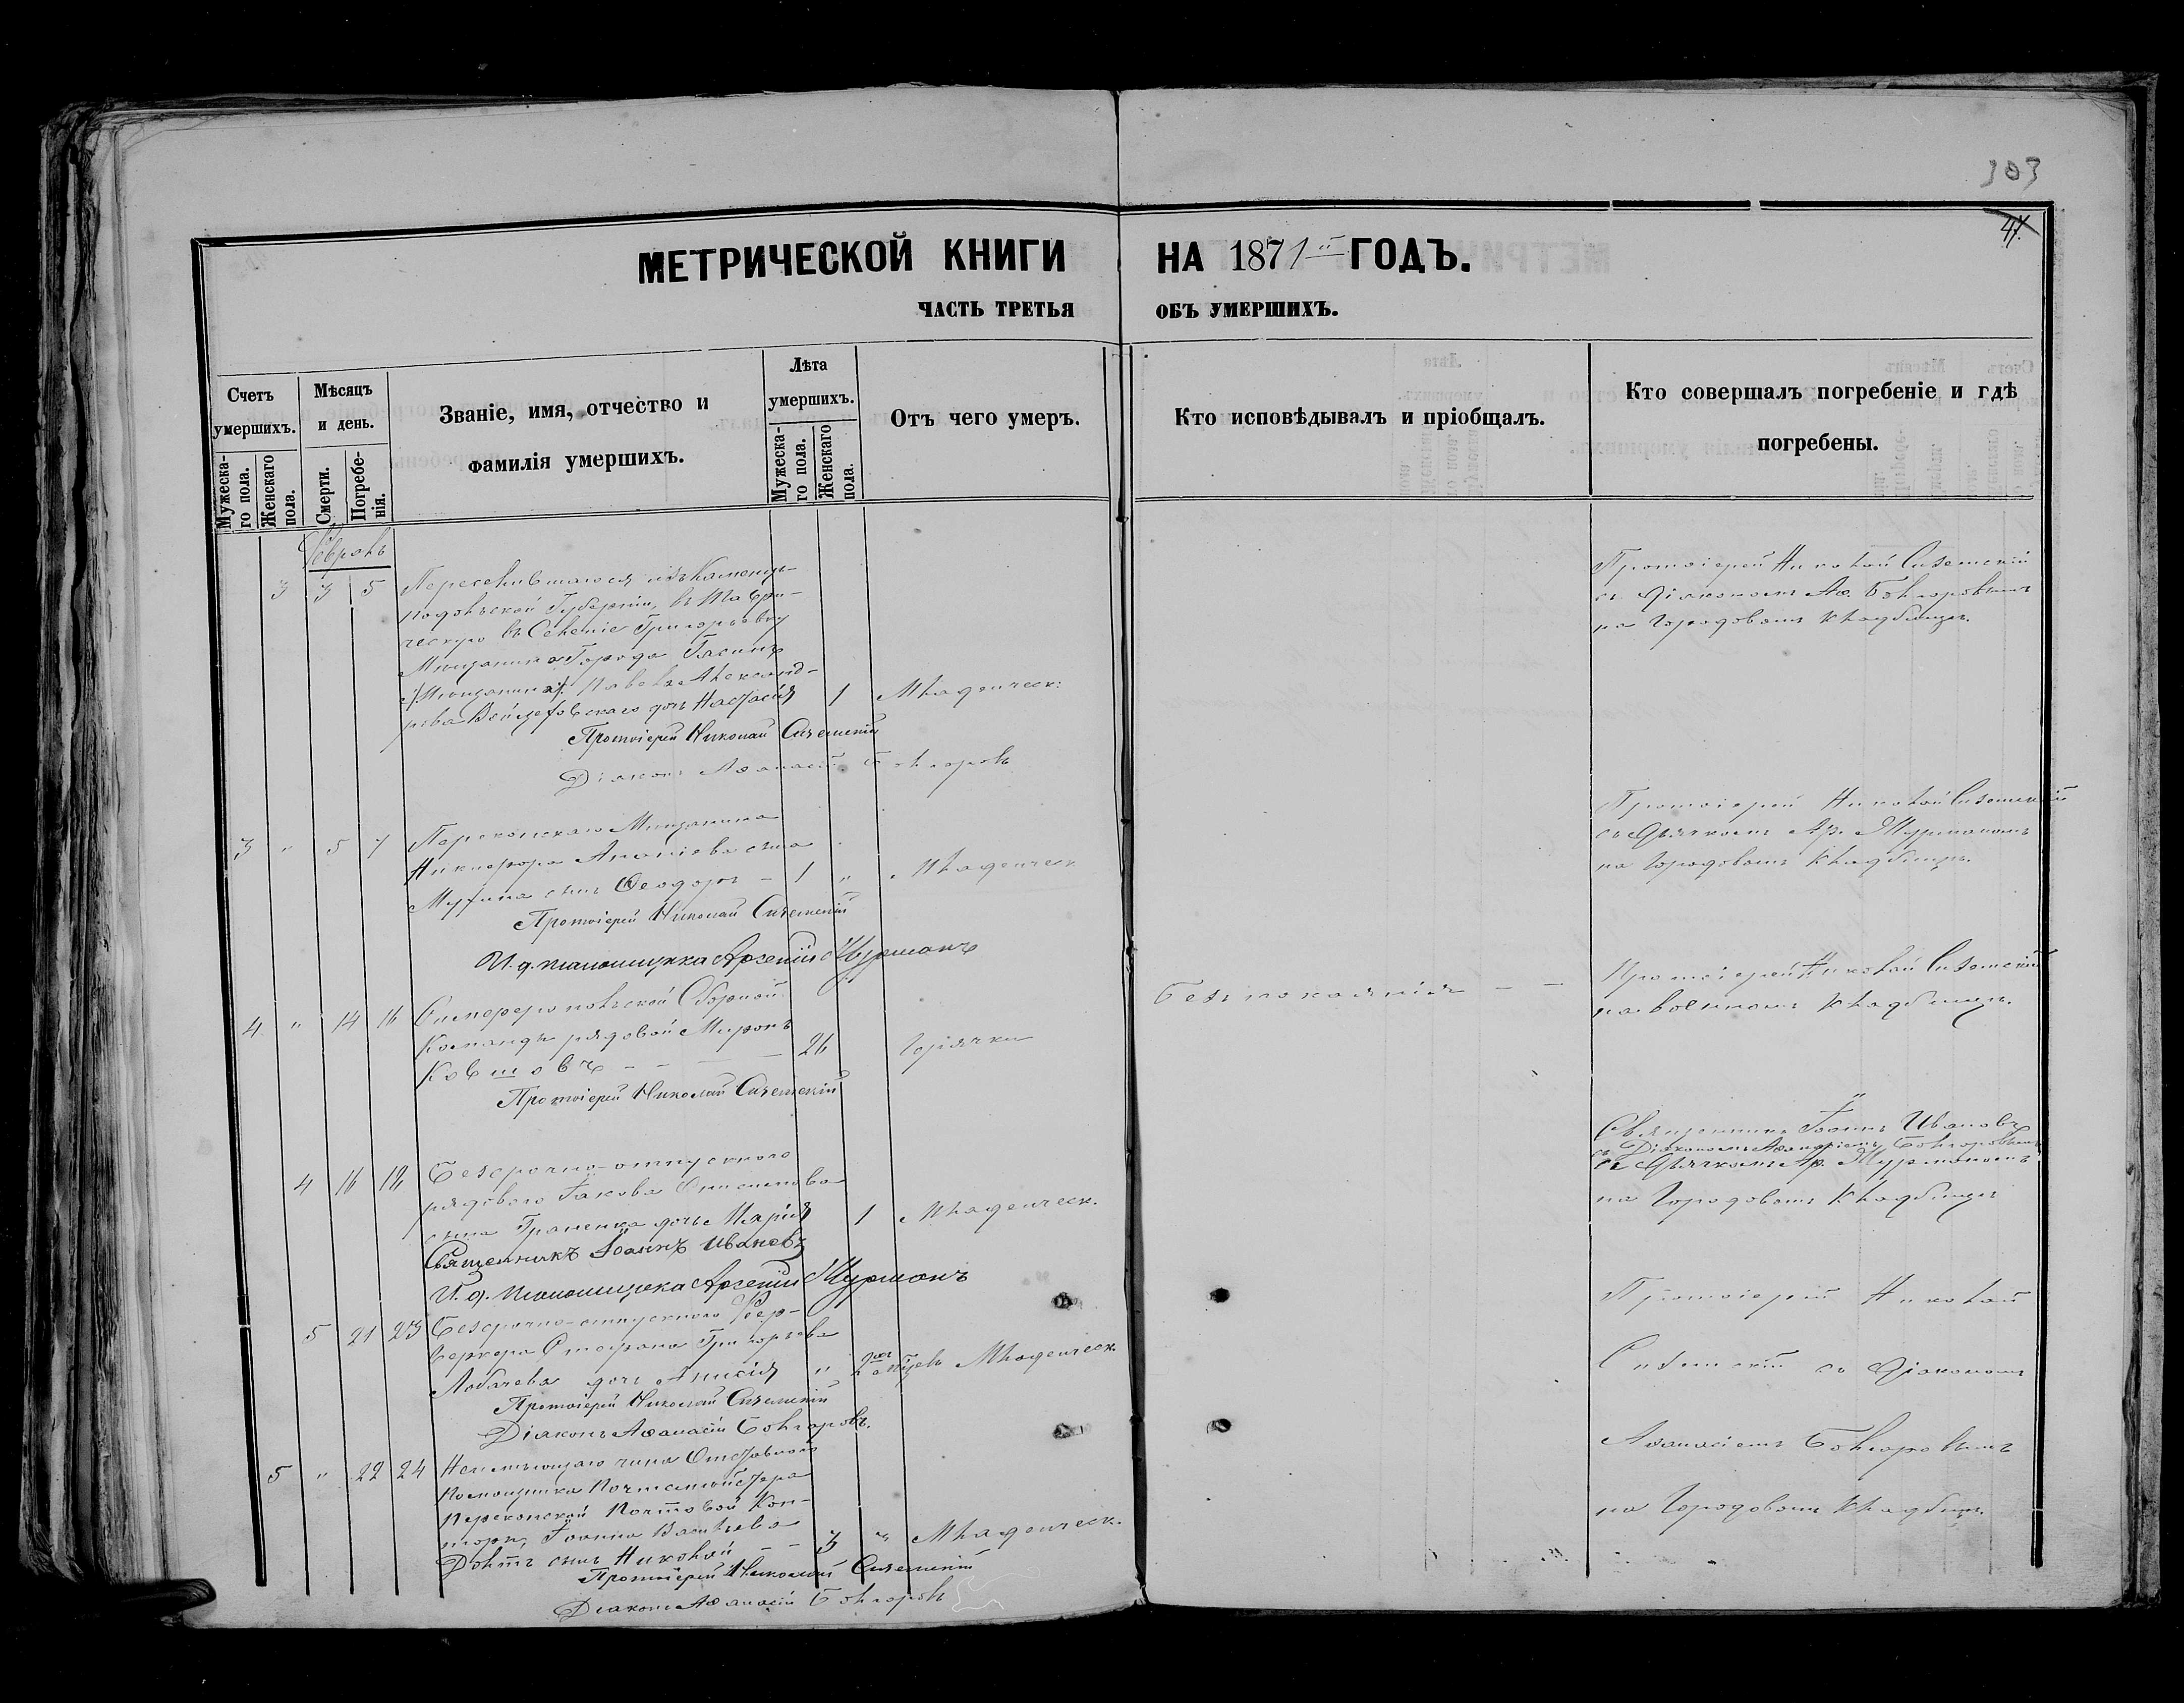 303
41.
МЕТРИЧЕСКОЙ КНИГИ НА 1871й ГОДЪ.
ЧАСТЬ ТРЕТЬЯ ОБЪ УМЕРШИХЪ.
Счетъ умершихъ.
Мужеска-
го пола.
Женскаго
пола.
Мѣсяцъ
и день.
Смерти.
Погребе-
нія.
Званіе, имя, отчество и
фамилія умершихъ.
Лѣта
умершихъ.
Мужеска-
го пола.
Женскаго
пола.
Отъ чего умеръ.
Кто исповѣдывалъ и пріобщалъ.
Кто совершалъ погребеніе и гдѣ
погребены.
Февраль
3 3 5 Переселившагося изъ Каменец-
подольской Губерніи, въ Таври-
ческую въ Селеніе Григорьевку
Мещанина Города
/:Мещанина:/ Павла Александ-
рова дочь Настасія 1 Младенческ:
Протоіерей Николай Сиземскій
Діаконъ Аѳанасій Болгаровъ
Протоіерей Николай Сиземскій
съ Діакономъ Аѳ. Болгаровымъ
на Городовомъ кладбищѣ.
3 " 5 7 Перекопскаго Мещанина
Никифора Ананіева сына
сынъ Ѳеодоръ - 1 " Младенческ
Протоіерей Николай Сиземскій
И. д. пономщика Арсеній Журманъ
Протоіерей Николай Сиземскій
съ Дьячкомъ Ар. Журманомъ
на Городовомъ кладбищѣ.
4 " 14 16 Симферопольской Сборной
Команды рядовой Миронъ
Ковшовъ - - - - 26 Горячки
Протоіерей Николай Сиземскій
Безъ покаянія - -
Протоіерей Николай Сиземскій
на военномъ кладбищѣ.
4 16 18 Безсрочно-отпускного
рядового Іакова
сына Граненка дочь Марія 1 Младенческ.
Священникъ Іоаннъ Ивановъ
И. д. пономщика Арсеній Журманъ
Священникъ Іоаннъ Ивановъ
съ Діакономъ Аѳанасіемъ Болгаровымъ
съ Дьячкомъ Ар. Журманомъ
на Городовомъ кладбищѣ
5 21 23 Безсрочно-отпускного Феер-
веркера Стефана Григорьева
Лобачева дочь Анисія " 2хъ мѣсяц Младенческ
Протоіерей Николай Сиземскій
Діаконъ Аѳанасій Болгаровъ.
Протоіерей Николай
Сиземскій съ Діакономъ
Аѳанасіемъ Болгаровымъ
на Городовомъ кладбищѣ.
5 " 22 24 Неимѣющаго чина Отставного
Помощника Почтмейстера
Перекопской Почтовой Кон-
торы, Іоанна Васильева
сынъ Николай - - 3 " Младенческ.
Протоіерей Николай Сиземскій
Діаконъ Аѳанасій Болгаровъ